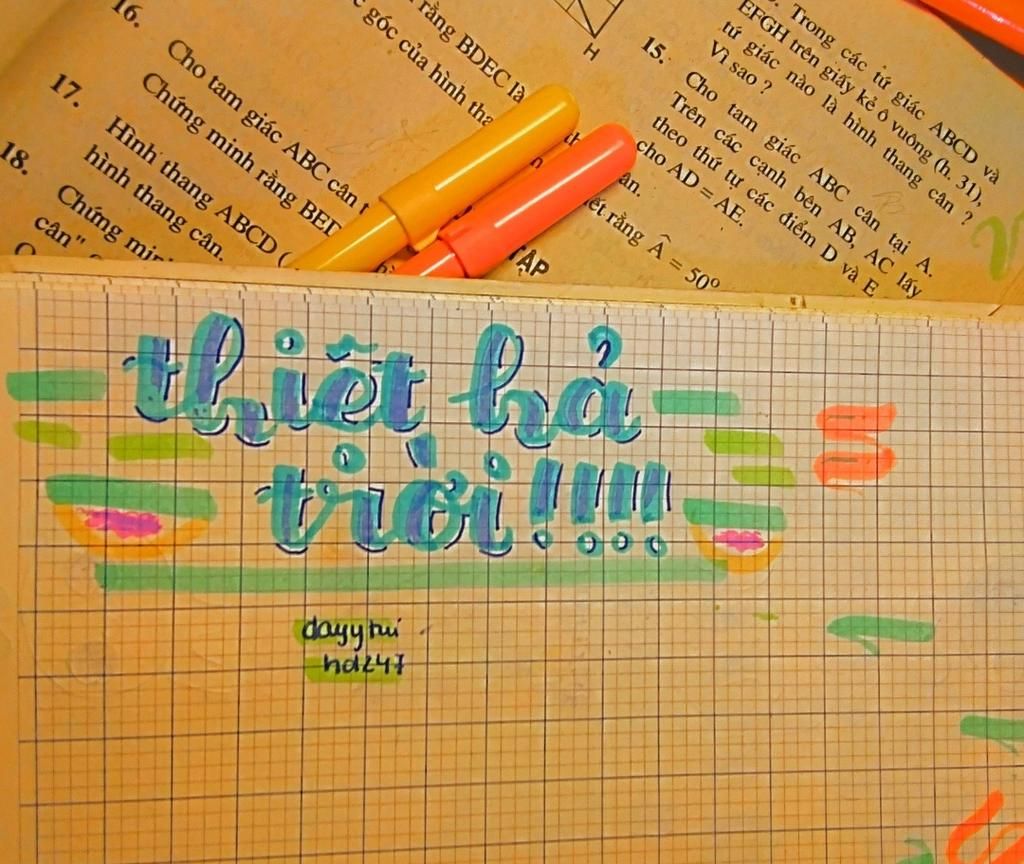 16.
Cho tam giác ABC cân t
Chứng minh rằng BED
17.
Hình thang ABCD (
hình thang cân.
18.
Chứng min
cân"
rằng BDEC là
góc của hình tha
H
15.
Cho tam giác ABC cân tại A.
Trên các cạnh bên AB, AC lấy
theo thứ tự các điểm D và E
cho AD = AE.
ết rằng Â = 50°
TẬP
Trong các tứ giác ABCD và
EFGH trên giấy kẻ ô vuông (h. 31),
tứ giác nào là hình thang cân ?
Vì sao ?
thiệt hả
trời!!!!!
dayytui
hd247